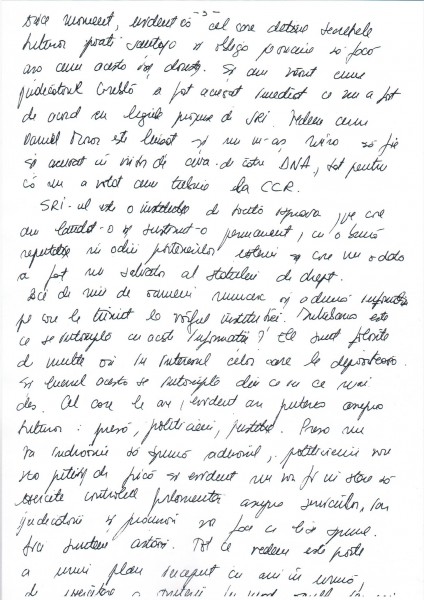 - 3 -
orice moment, evident că cel care deține secretele
tuturor poate șantaja și obliga pe oricine să facă
așa cum acesta își dorește. Și am văzut cum
judecătorul a fost acuzat imediat ce nu a fost
de acord cu legile propuse de SRI. Vedem cum
Daniel Morar este lăsat și nu m-aș mira să fie
și acuzat în viitor de ceva de către DNA, tot pentru
că nu a votat cum trebuie la CCR.
SRI-ul este o instituție de toată isprava, pe care
am lăudat-o și susținut-o permanent, cu o bună
reputație în ochii partenerilor externi și care nu o dată
a fost un salvator al statului de drept.
Zeci de mii de oameni muncesc și adună informații
pe care le trimit la vârful instituției. Întrebarea este
ce se întâmplă cu aceste informații? Ele sunt folosite
de multe ori în interesul celor care le
Și lucrul acesta se întâmplă din ce în ce mai
des. Cel care le are, evident are puterea asupra
tuturor: presă, politicieni, justiție. Presa nu
va îndrăzni să spună adevărul, politicienii vor
de frică și evident nu vor fi în stare să
exercite controlul parlamentar asupra serviciilor, iar
judecătorii și procurorii vor face ce li se spune.
Aici suntem astăzi. Tot ce vedem este parte
a unui plan început cu ani în urmă,
de